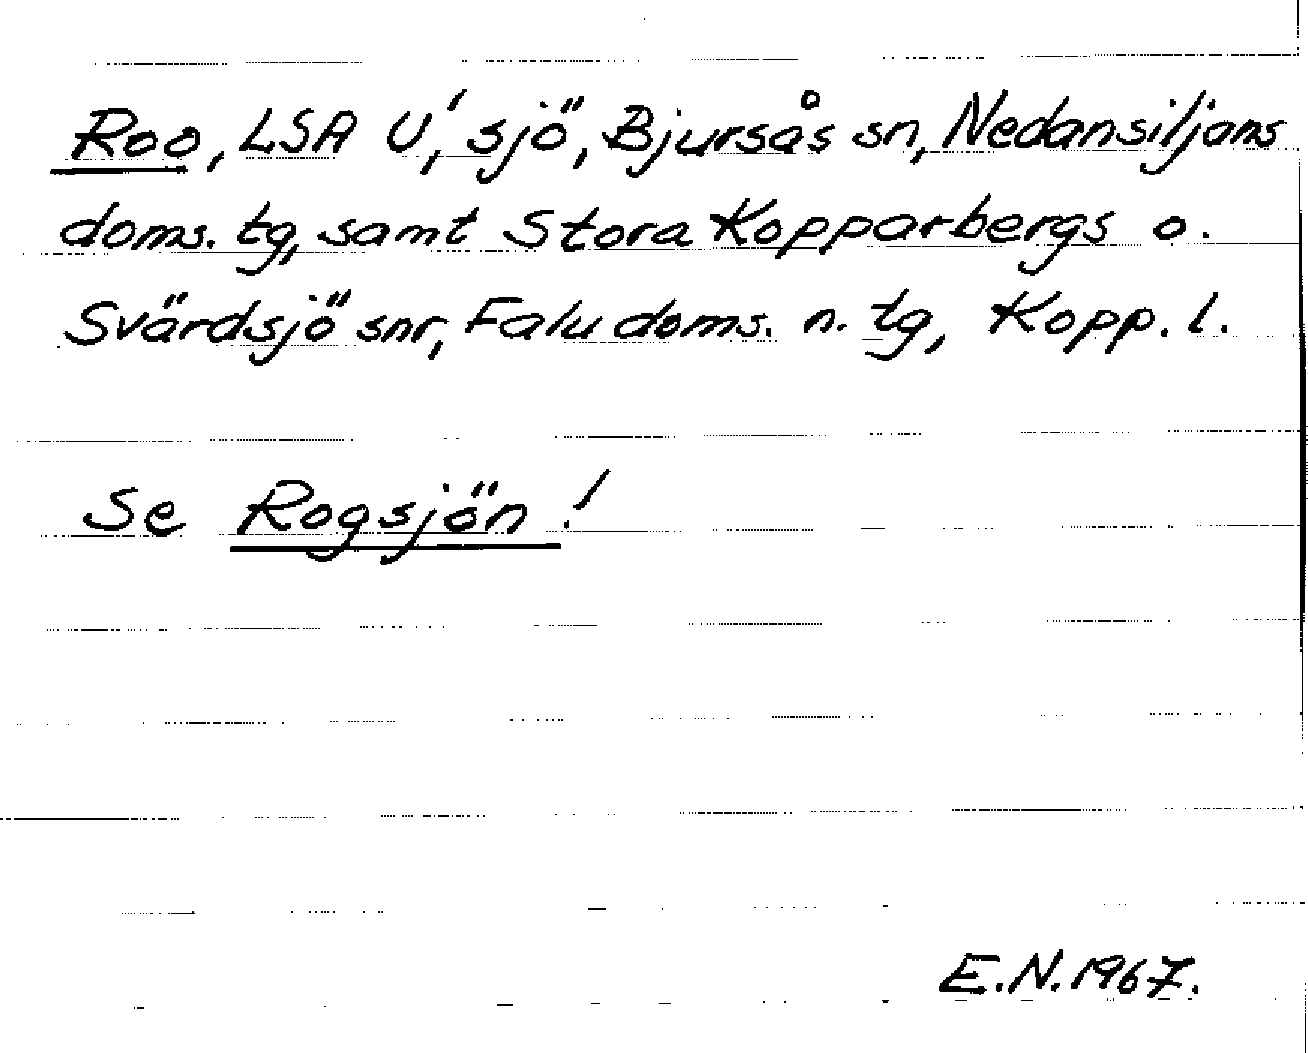 Roo, LSA U', sjö, Bjursås sn, Nedansiljans
doms. tg, samt Stora Kopparbergs o.
Svärdsjö snr, Falu doms. n. tg, Kopp. l.
Se Rogsjön!
E.N. 1967.